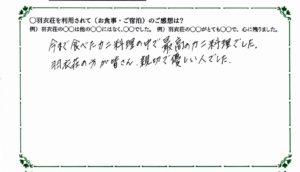 ○羽衣荘を利用されて（お食事・ご宿泊）のご感想は？
例）羽衣荘の○○は他の○○にはなく、○○でした。 例）羽衣荘の○○がとても○○で、心に残りました。
今まで食べたカニ料理の中で最高のカニ料理でした。
羽衣荘の方が皆さん、親切で優しい人でした。